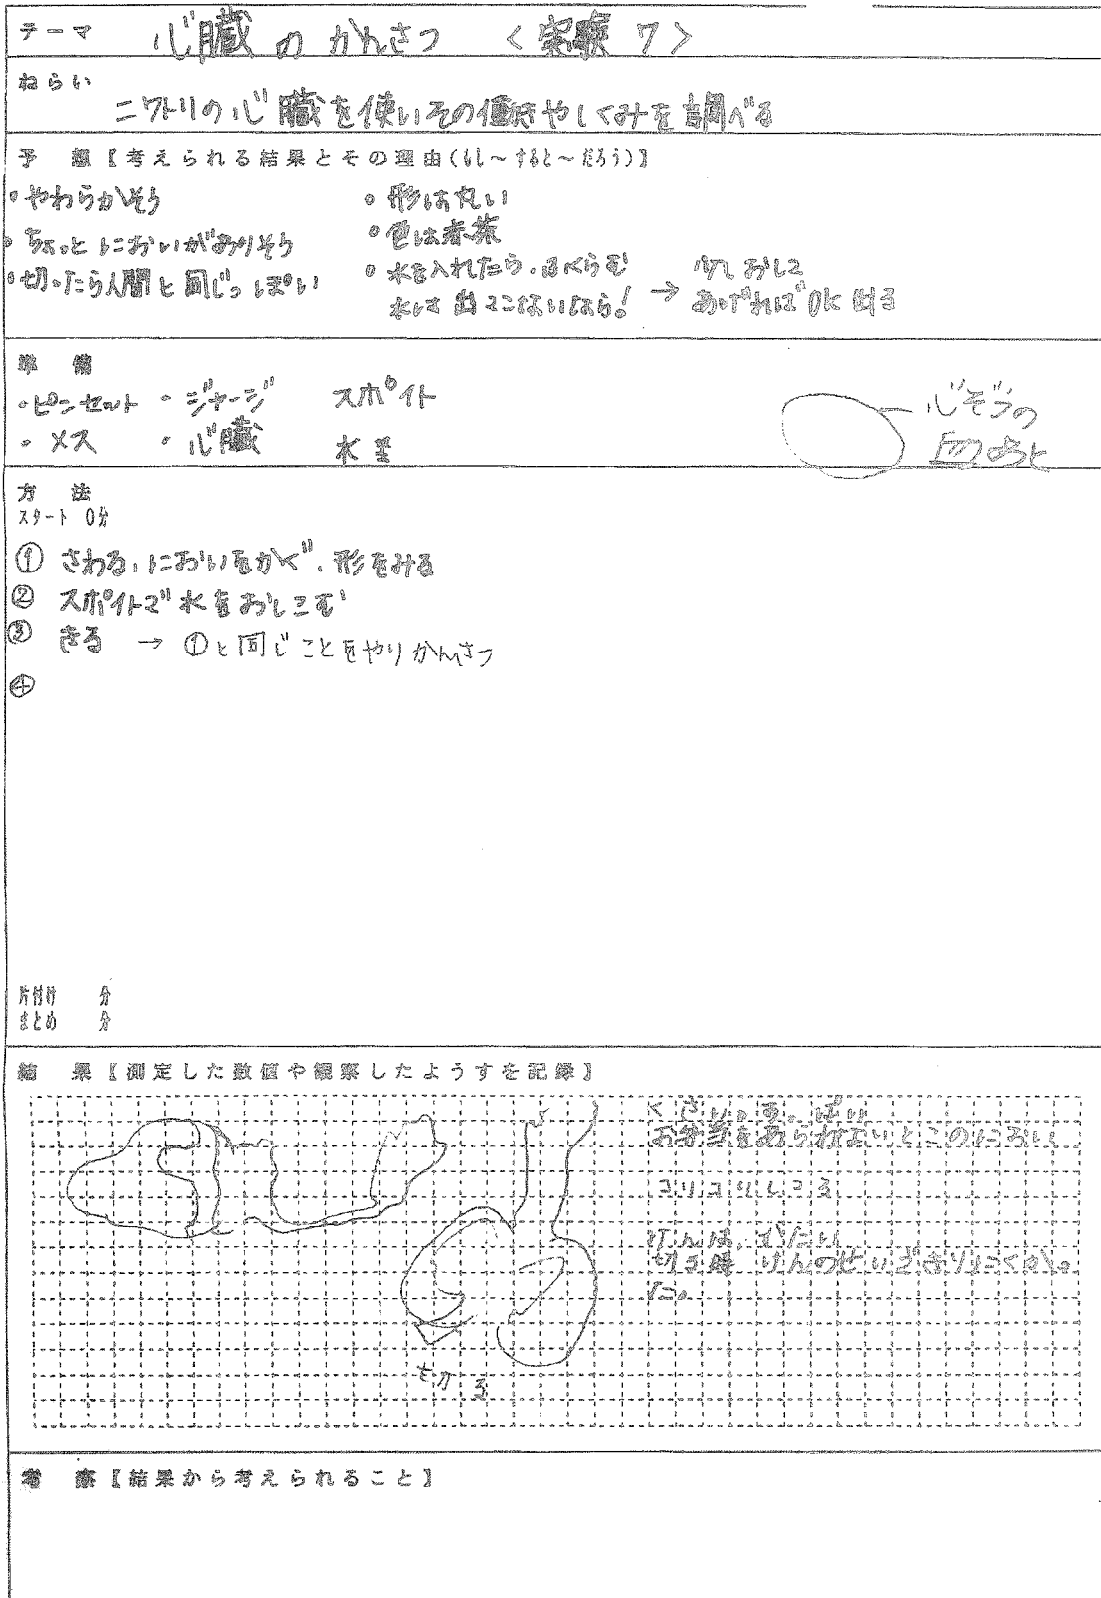 テーマ 心臓のかんさつ <実験7>
ねらい
ニワトリの心臓を使いその働きやしくみを調べる
予 想【考えられる結果とその理由(もし～すると～だろう)】
・やわらかそう
・ちょっとにおいがありそう
・切ったら人間と同じっぽい
・形は丸い
・色は赤茶
・水を入れたら、ふくらむ
水は出てこないはら! → 少しおして
あげればOK出る
準 備
・ピンセット ・ジャージ スポイト
・メス ・心臓 水
心ぞうの
血のあと
方 法
スタート 0分
① さわる、においをかぐ、形をみる
② スポイトで水をおしこむ
③ きる → ①と同じことをやりかんさつ
④
片付け 分
まとめ 分
結 果【測定した数値や観察したようすを記録】
お弁当をあらわないとこのにおい
コリコリしてる
けんは、かたい
切る時 けんのせいで
た。
考 察【結果から考えられること】